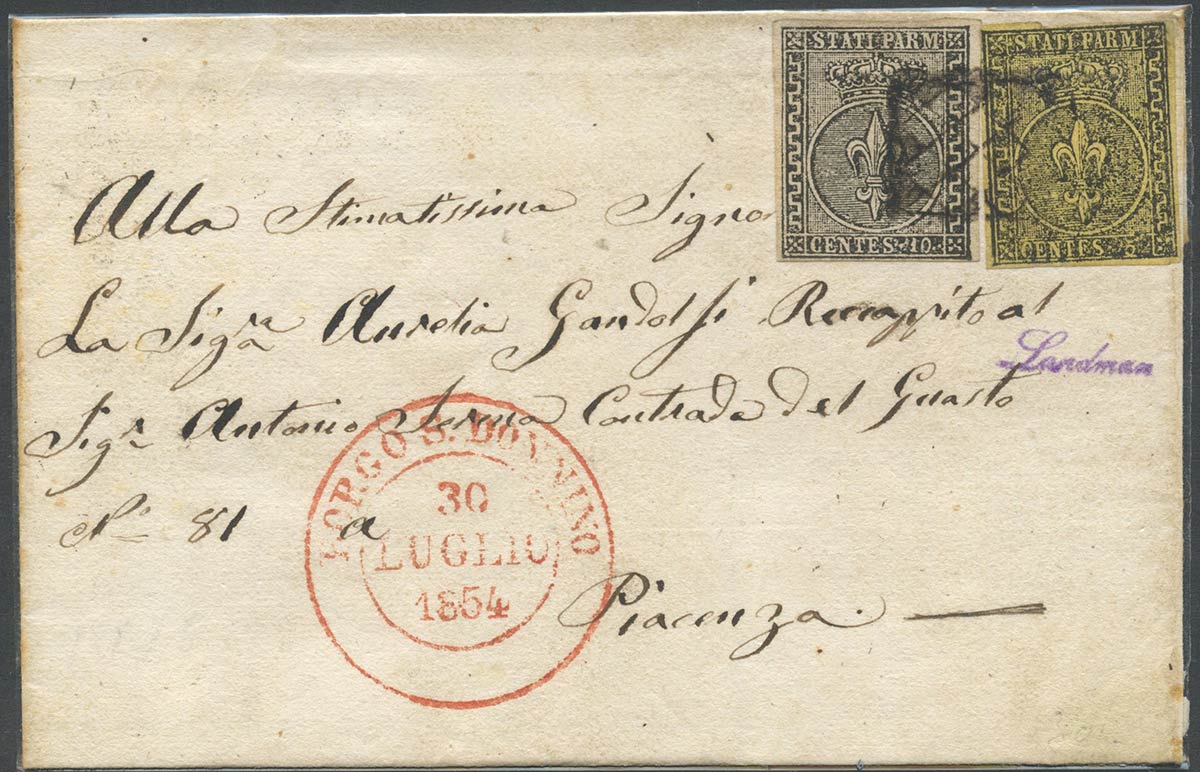 STATI PARM
CENTES. 10.
STATI PARM
CENTES. 5
Alla Stimatissima Signo
La Sigra Aurelia Gandolfi Recapito al
Landman
Sigr Antonio Contrada del Guasto
No 81 a
Piacenza.
BORGO S. DONNINO
30
LUGLIO
1854